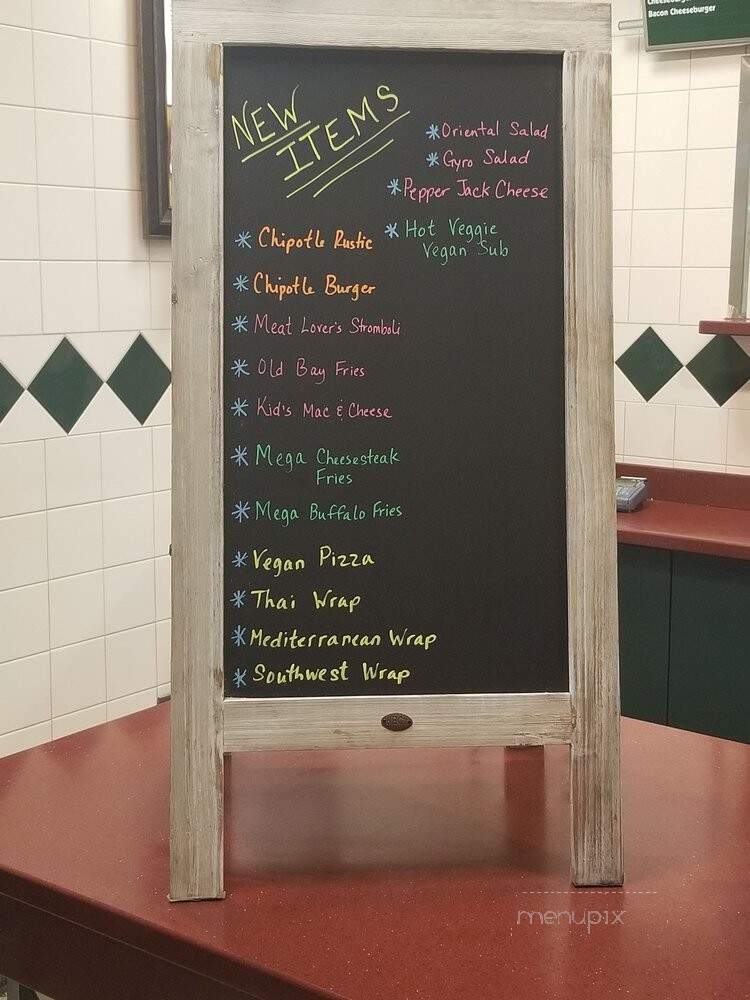 Bacon Cheeseburger
NEW
ITEMS
* Oriental Salad
* Gyro Salad
* Pepper Jack Cheese
* Hot Veggie
Vegan Sub
* Chipotle Rustic
* Chipotle Burger
* Meat Lover's Stromboli
* Old Bay Fries
* Kid's Mac & Cheese
* Mega Cheesesteak
Fries
* Mega Buffalo Fries
* Vegan Pizza
* Thai Wrap
* Mediterranean Wrap
* Southwest Wrap
menupix